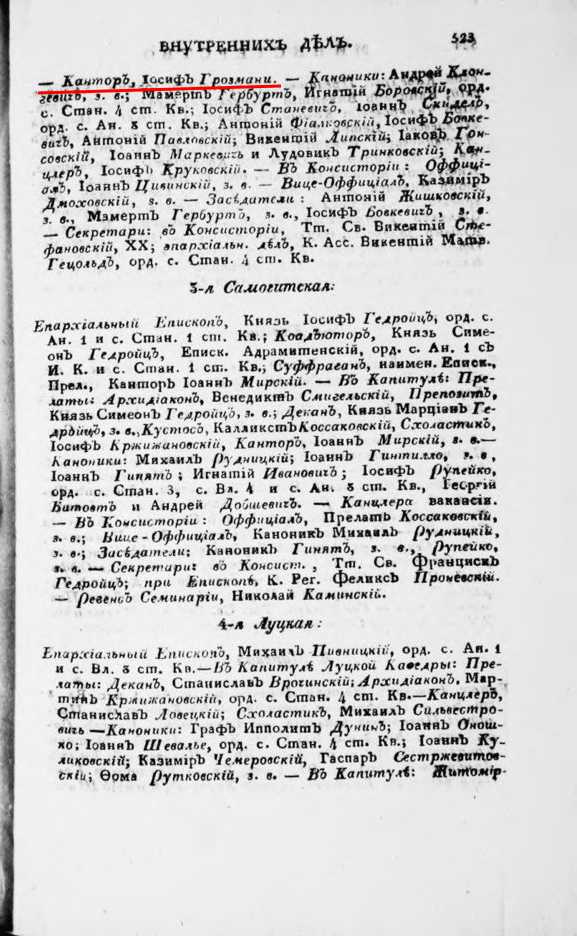 ВНУТРЕННИХЪ ДѢЛЪ. 523
— Канторъ, Іосифъ Грозмани. — Каноники: Андрей Клон-
гевичъ, з. в.; Мамертъ Гербуртъ, Игнатій Боровскій, орд.
с. Стан. 4 ст. Кв.; Іосифъ Станевичъ, Іоаннъ Скидель,
орд. с. Ан. 3 ст. Кв.; Антоній Фіалковскій, Іосифъ Бовке-
вичъ, Антоній Павловскій; Викентій Липскій; Іаковъ Гон-
совскій, Іоаннъ Маркевичъ и Лудовикъ Тринковскій; Кан-
цлеръ, Іосифъ Круковскій. — Въ Консисторіи: Оффиці-
алъ, Іоаннъ Цивинскій, з. в. — Вице-Оффиціалъ, Казиміръ
Дмоховскій, з. в. — Засѣдатели: Антоній Жишковскій,
з. в., Мамертъ Гербуртъ, з. в., Іосифъ Бовкевичъ, з. в.
— Секретари: въ Консисторіи, Тт. Св. Викентій Сте-
фановскій, XX; епархіальн. дѣлъ, К. Асс. Викентій Матв.
Гецольдъ, орд. с. Стан. 4 ст. Кв.
3-я Самогитская:
Епархіальный Епископъ, Князь Іосифъ Гедройцъ, орд. с.
Ан. 1 и с. Стан. 1 ст. Кв.; Коадъюторъ, Князь Симе-
онъ Гедройцъ, Еписк. Адрамитенскій, орд. с. Ан. 1 съ
И. К. и с. Стан. 1 ст. Кв.; Суффраганъ, наимен. Еписк.,
Прел., Канторъ Іоаннъ Мирскій. — Въ Капитулѣ: Пре-
латы: Архидіаконъ, Венедиктъ Смигельскій, Препозитъ,
Князь Симеонъ Гедройцъ, з. в.; Деканъ, Князь Марціанъ Ге-
дройцъ, з. в., Кустосъ, Калликстъ Коссаковскій, Схоластикъ,
Іосифъ Кржижановскій, Канторъ, Іоаннъ Мирскій, з. в.—
Каноники: Михаилъ Рудницкій; Іоаннъ Гинтилло, з. в,
Іоаннъ Гинятъ; Игнатій Ивановичъ; Іосифъ Рупейко,
орд. с. Стан. 3, с. Вл. 4 и с. Ан. 3 ст. Кв., Георгій
Битовтъ и Андрей Довшевичъ. — Канцлера вакансія.
— Въ Консисторіи: Оффиціалъ, Прелатъ Коссаковскій,
з. в.; Вице-Оффиціалъ, Каноникъ Михаилъ Рудницкій,
з. в.; Засѣдатели: Каноникъ Гинятъ, з. в., Рупейко,
з. в. — Секретари: въ Консист., Тт. Св. Францискъ
Гедройцъ; при Епископѣ, К. Рег. Феликсъ Проневскій.
— Регенсъ Семинаріи, Николай Каминскій.
4-я Луцкая:
Епархіальный Епископъ, Михаилъ Пивницкій, орд. с. Ан. 1
и с. Вл. 3 ст. Кв.—Въ Капитулѣ Луцкой Каѳедры: Пре-
латы: Деканъ, Станиславъ Врочинскій; Архидіаконъ, Мар-
тинъ Кржижановскій, орд. с. Стан. 4 ст. Кв.—Канцлеръ,
Станиславъ Ловецкій; Схоластикъ, Михаилъ Сильвестро-
вичъ—Каноники: Графъ Ипполитъ Дунинъ; Іоаннъ Оношко;
Іоаннъ Шевалье, орд. с. Стан. 4 ст. Кв.; Іоаннъ Ку-
ликовскій; Казиміръ Чемеровскій, Гаспаръ Сестржевитов-
скій; Ѳома Рутковскій, з. в. — Въ Капитулѣ: Житомір-